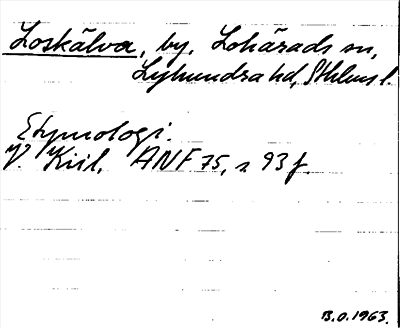 Loskälva, by, Lohärads sn,
Lyhundra hd, Sthlms l.
Etymologi.
V. Kiil, ANF 75, s 93 f.
B.O. 1963.